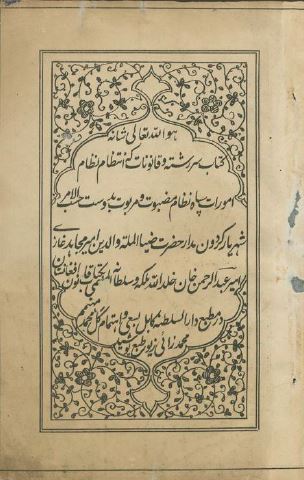 هو الله تعالی شانه
کتاب سررشته و قانونات که انتظام انظام
امورات سپاه نظام مضبوت و مربوت بدوست حسب الامر
شهریار گردون مدار حضرت ضیا الملة والدین امیر مجاهد غازی
امیر عبدالرحمن خان خلد الله ملکه و سلطانه
در مطبع دارالسلطنه کابل بسعی و اهتمام گل محمد
محمدزائی زیور طبع پوشید